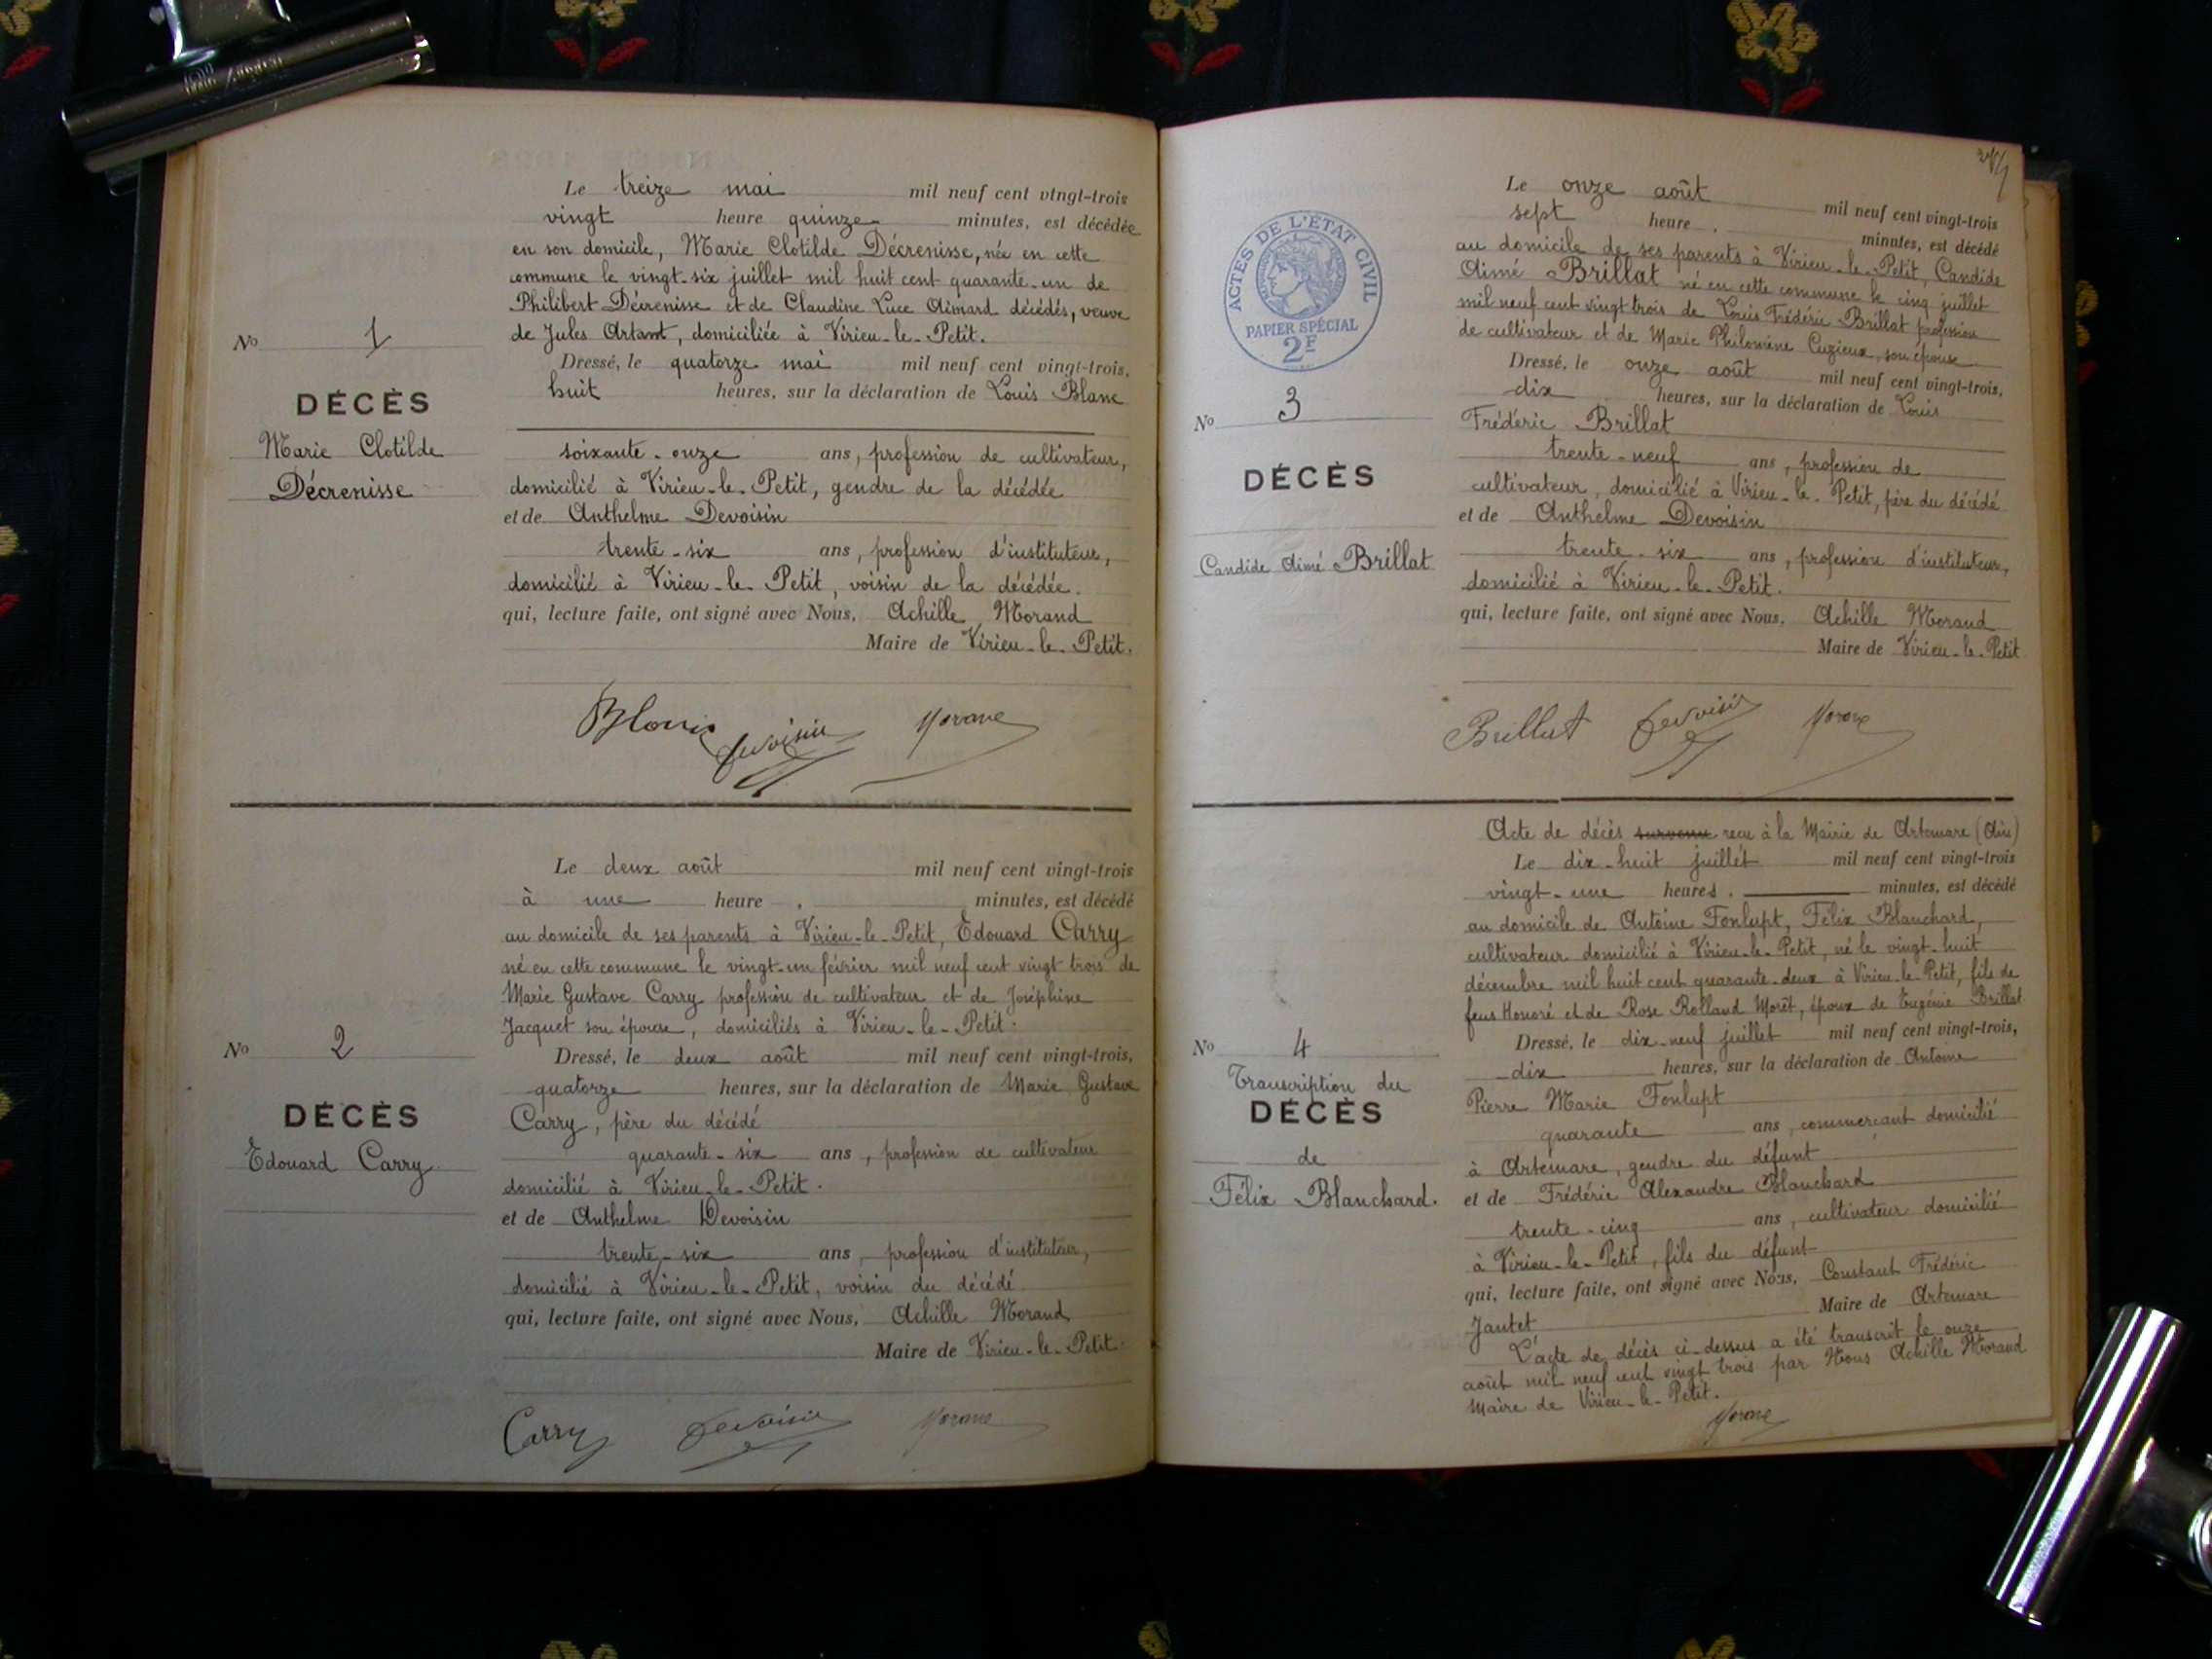 No 1
DÉCÈS
Marie Clotilde
Décrenisse
Le treize mai mil neuf cent vingt-trois
vingt heure quinze minutes, est décédée
en son domicile, Marie Clotilde Décrenisse, née en cette
commune le vingt-six juillet mil huit cent quarante-un de
Philibert Décrenisse et de Claudine Luce Aimard décédés, veuve
de Jules Artant, domiciliée à Virieu-le-Petit.
Dressé, le quatorze mai mil neuf cent vingt-trois,
huit heures, sur la déclaration de Louis Blanc
soixante-onze ans, profession de cultivateur,
domicilié à Virieu-le-Petit, gendre de la décédée
et de Anthelme Devoisin
trente-six ans, profession d'instituteur,
domicilié à Virieu-le-Petit, voisin de la décédée.
qui, lecture faite, ont signé avec Nous, Achille Morand
Maire de Virieu-le-Petit.
Devoisin
No 2
DÉCÈS
Edouard Carry
Le deux août mil neuf cent vingt-trois
à une heure . minutes, est décédé
au domicile de ses parents à Virieu-le-Petit, Edouard Carry
né en cette commune le vingt-un février mil neuf cent vingt trois de
Marie Gustave Carry profession de cultivateur et de Joséphine
Jacquet son épouse, domiciliés à Virieu-le-Petit.
Dressé, le deux août mil neuf cent vingt-trois,
quatorze heures, sur la déclaration de Marie Gustave
Carry, père du décédé
quarante-six ans, profession de cultivateur
domicilié à Virieu-le-Petit.
et de Anthelme Devoisin
trente-six ans, profession d'instituteur,
domicilié à Virieu-le-Petit, voisin du décédé
qui, lecture faite, ont signé avec Nous, Achille Morand
Maire de Virieu-le-Petit.
Carry Devoisin
ACTES DE L'ÉTAT CIVIL
PAPIER SPÉCIAL
2F
No 3
DÉCÈS
Candide Aimé Brillat
Le onze août mil neuf cent vingt-trois
sept heure . minutes, est décédé
au domicile de ses parents à Virieu-le-Petit, Candide
Aimé Brillat né en cette commune le cinq juillet
mil neuf cent vingt trois de Louis Frédéric Brillat profession
de cultivateur et de Marie Philomène Cuzieux, son épouse
Dressé, le onze août mil neuf cent vingt-trois,
dix heures, sur la déclaration de Louis
Frédéric Brillat
trente-neuf ans, profession de
cultivateur, domicilié à Virieu-le-Petit, père du décédé
et de Anthelme Devoisin
trente-six ans, profession d'instituteur,
domicilié à Virieu-le-Petit.
qui, lecture faite, ont signé avec Nous, Achille Morand
Maire de Virieu-le-Petit
Brillat Devoisin
No 4
Transcription du
DÉCÈS
de
Félix Blanchard.
Acte de décès survenu reçu à la Mairie de Artemare (Ain)
Le dix-huit juillet mil neuf cent vingt-trois
vingt-une heures . minutes, est décédé
au domicile de Antoine Fonlupt, Félix Blanchard,
cultivateur domicilié à Virieu-le-Petit, né le vingt-huit
décembre mil huit cent quarante-deux à Virieu-le-Petit, fils de
feus Honoré et de Rose Rolland Morêt, époux de Eugénie Brillat
Dressé, le dix-neuf juillet mil neuf cent vingt-trois,
dix heures, sur la déclaration de Antoine
Pierre Marie Fonlupt
quarante ans, commerçant domicilié
à Artemare, gendre du défunt
et de Frédéric Alexandre Blanchard
trente-cinq ans, cultivateur domicilié
à Virieu-le-Petit, fils du défunt
qui, lecture faite, ont signé avec Nous, Constant Frédéric
Jantet Maire de Artemare
L'acte de décès ci-dessus a été transcrit le onze
août mil neuf cent vingt trois par Nous Achille Morand
Maire de Virieu-le-Petit.